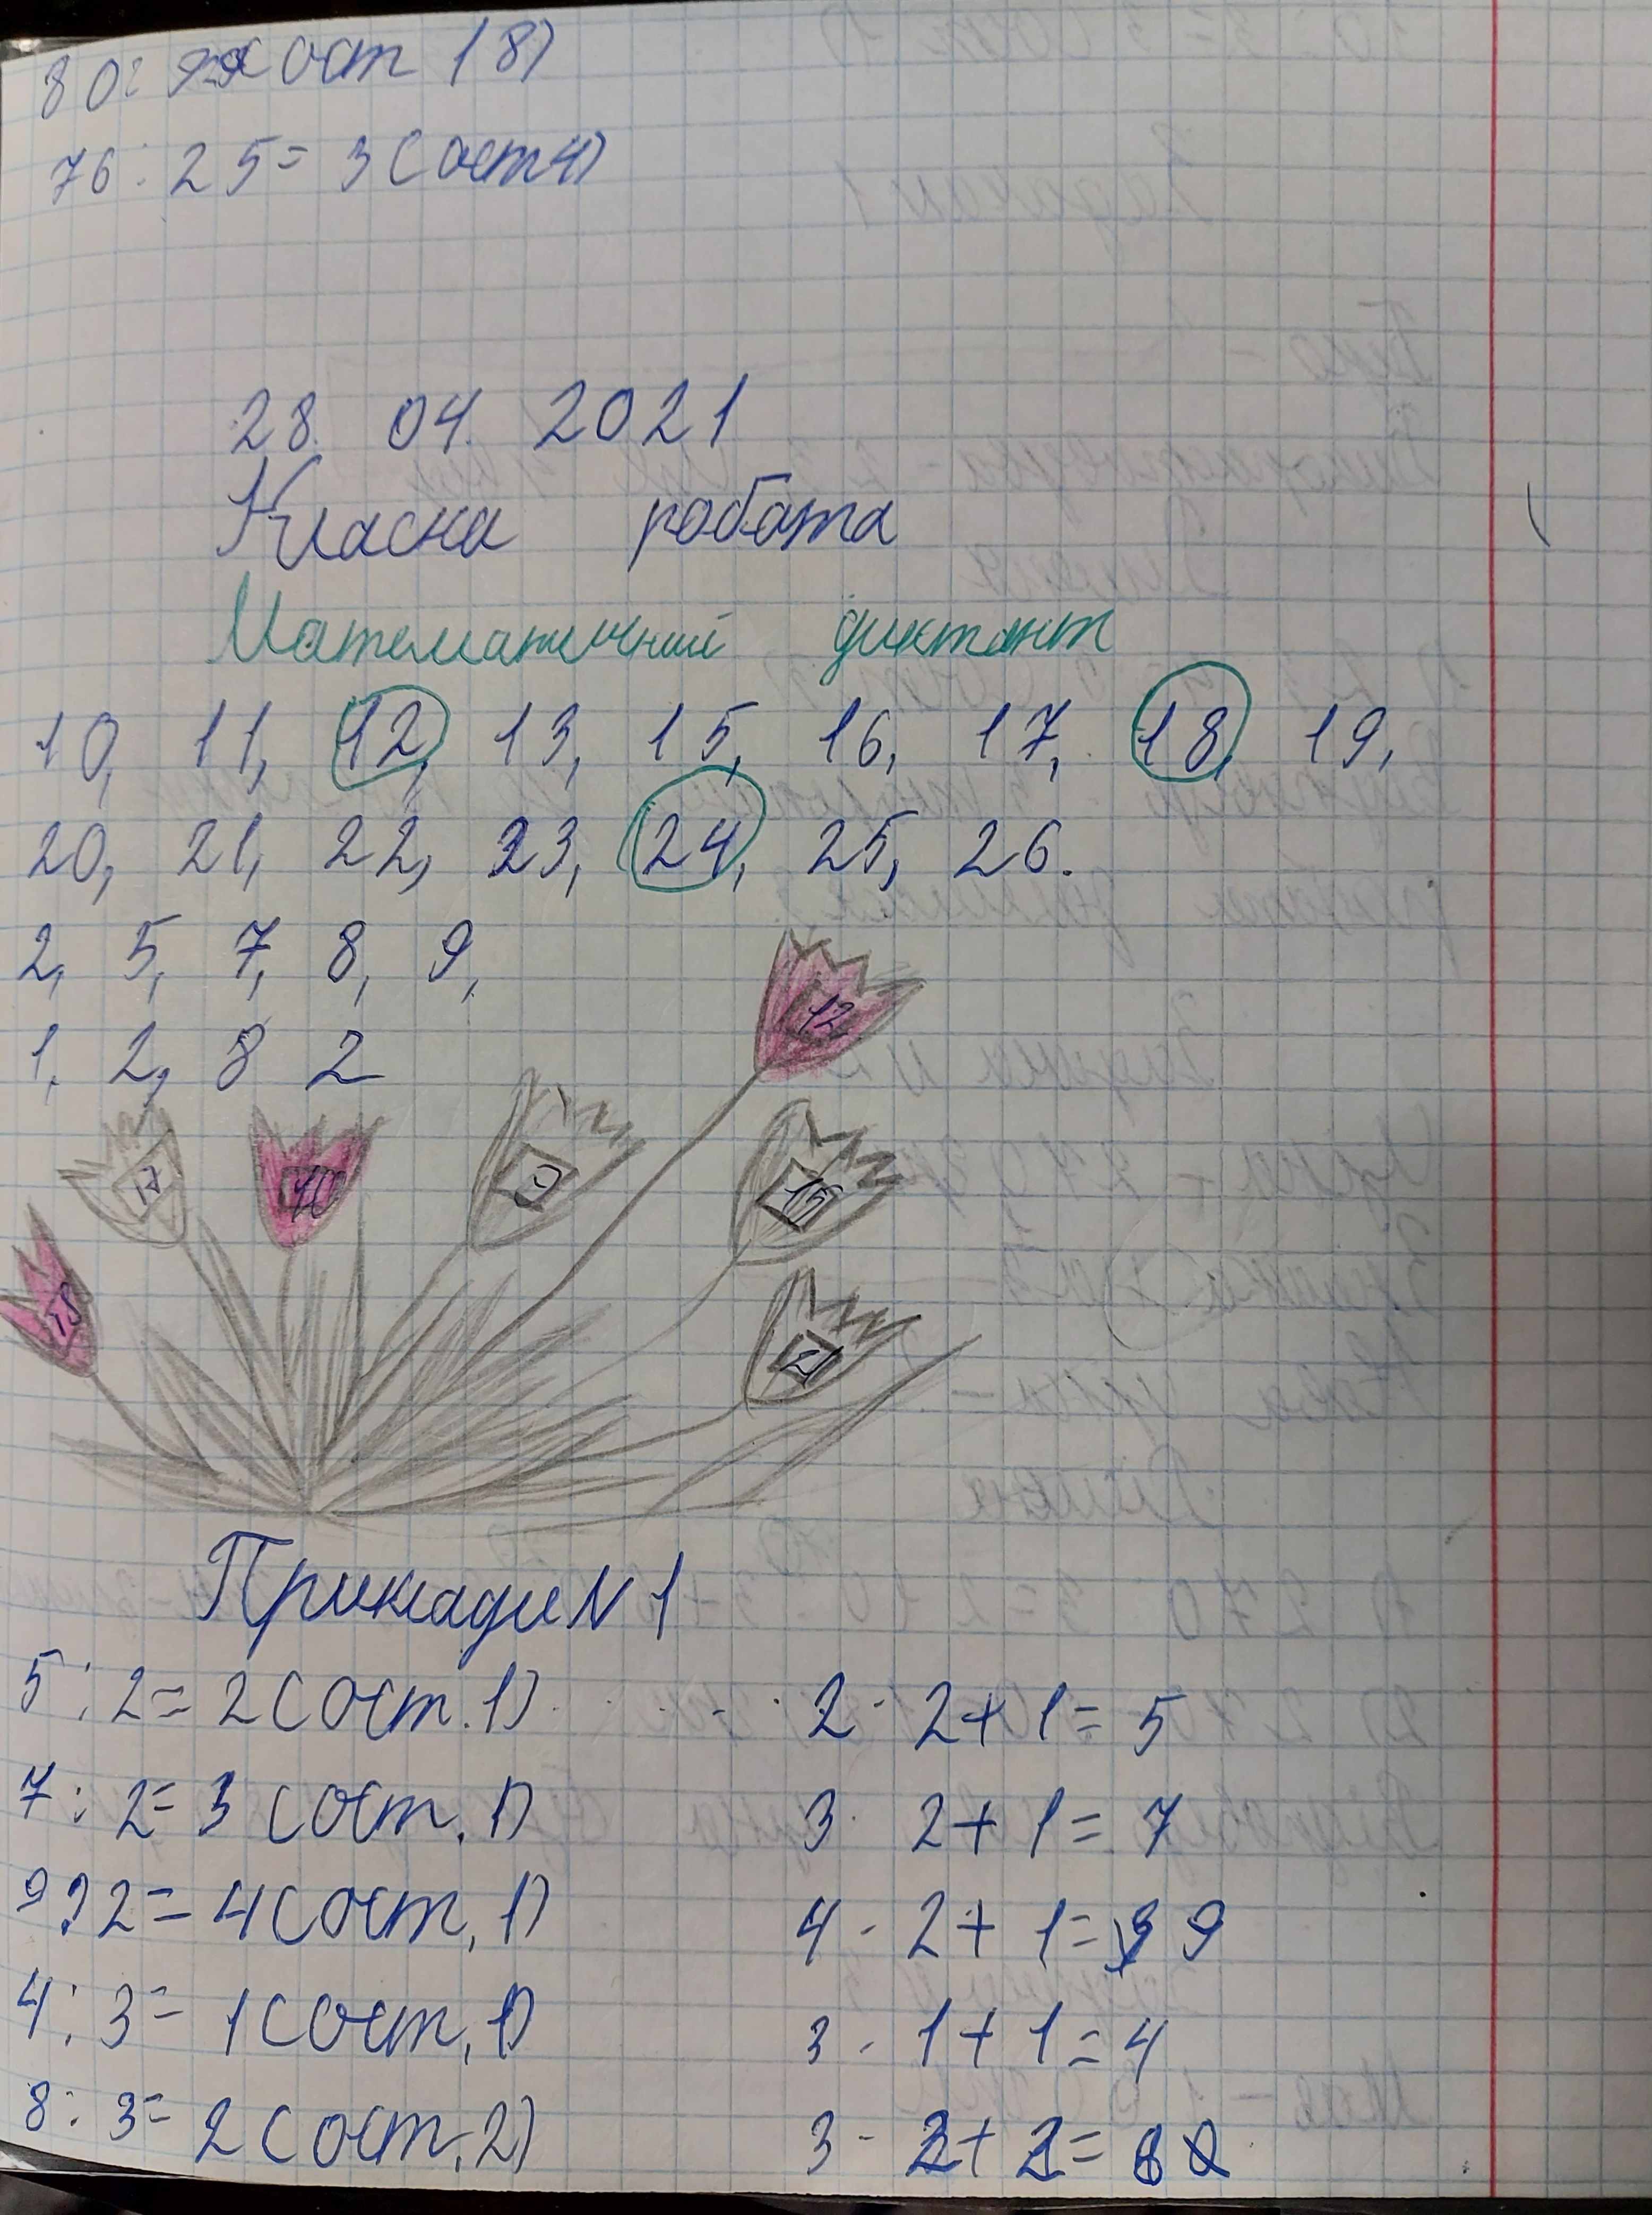 80: ост 18)
76 : 25 = 3 (ост 1)
28. 04. 2021
Класна робота
Математичний диктант
10, 11, 12, 13, 15, 16, 17, 18, 19,
20, 21, 22, 23, 24, 25, 26.
2, 5, 7, 8, 9,
1. 2, 8 2
12
17 10 9 15
18
21
Приклади N 1
5 : 2 = 2 (ост. 1) 2 · 2 + 1 = 5
7 : 2 = 3 (ост. 1) 3 · 2 + 1 = 7
9 : 2 = 4 (ост. 1) 4 · 2 + 1 = 9
4 : 3 = 1 (ост. 1) 3 · 1 + 1 = 4
8 : 3 = 2 (ост. 2) 3 · 2 + 2 = 8